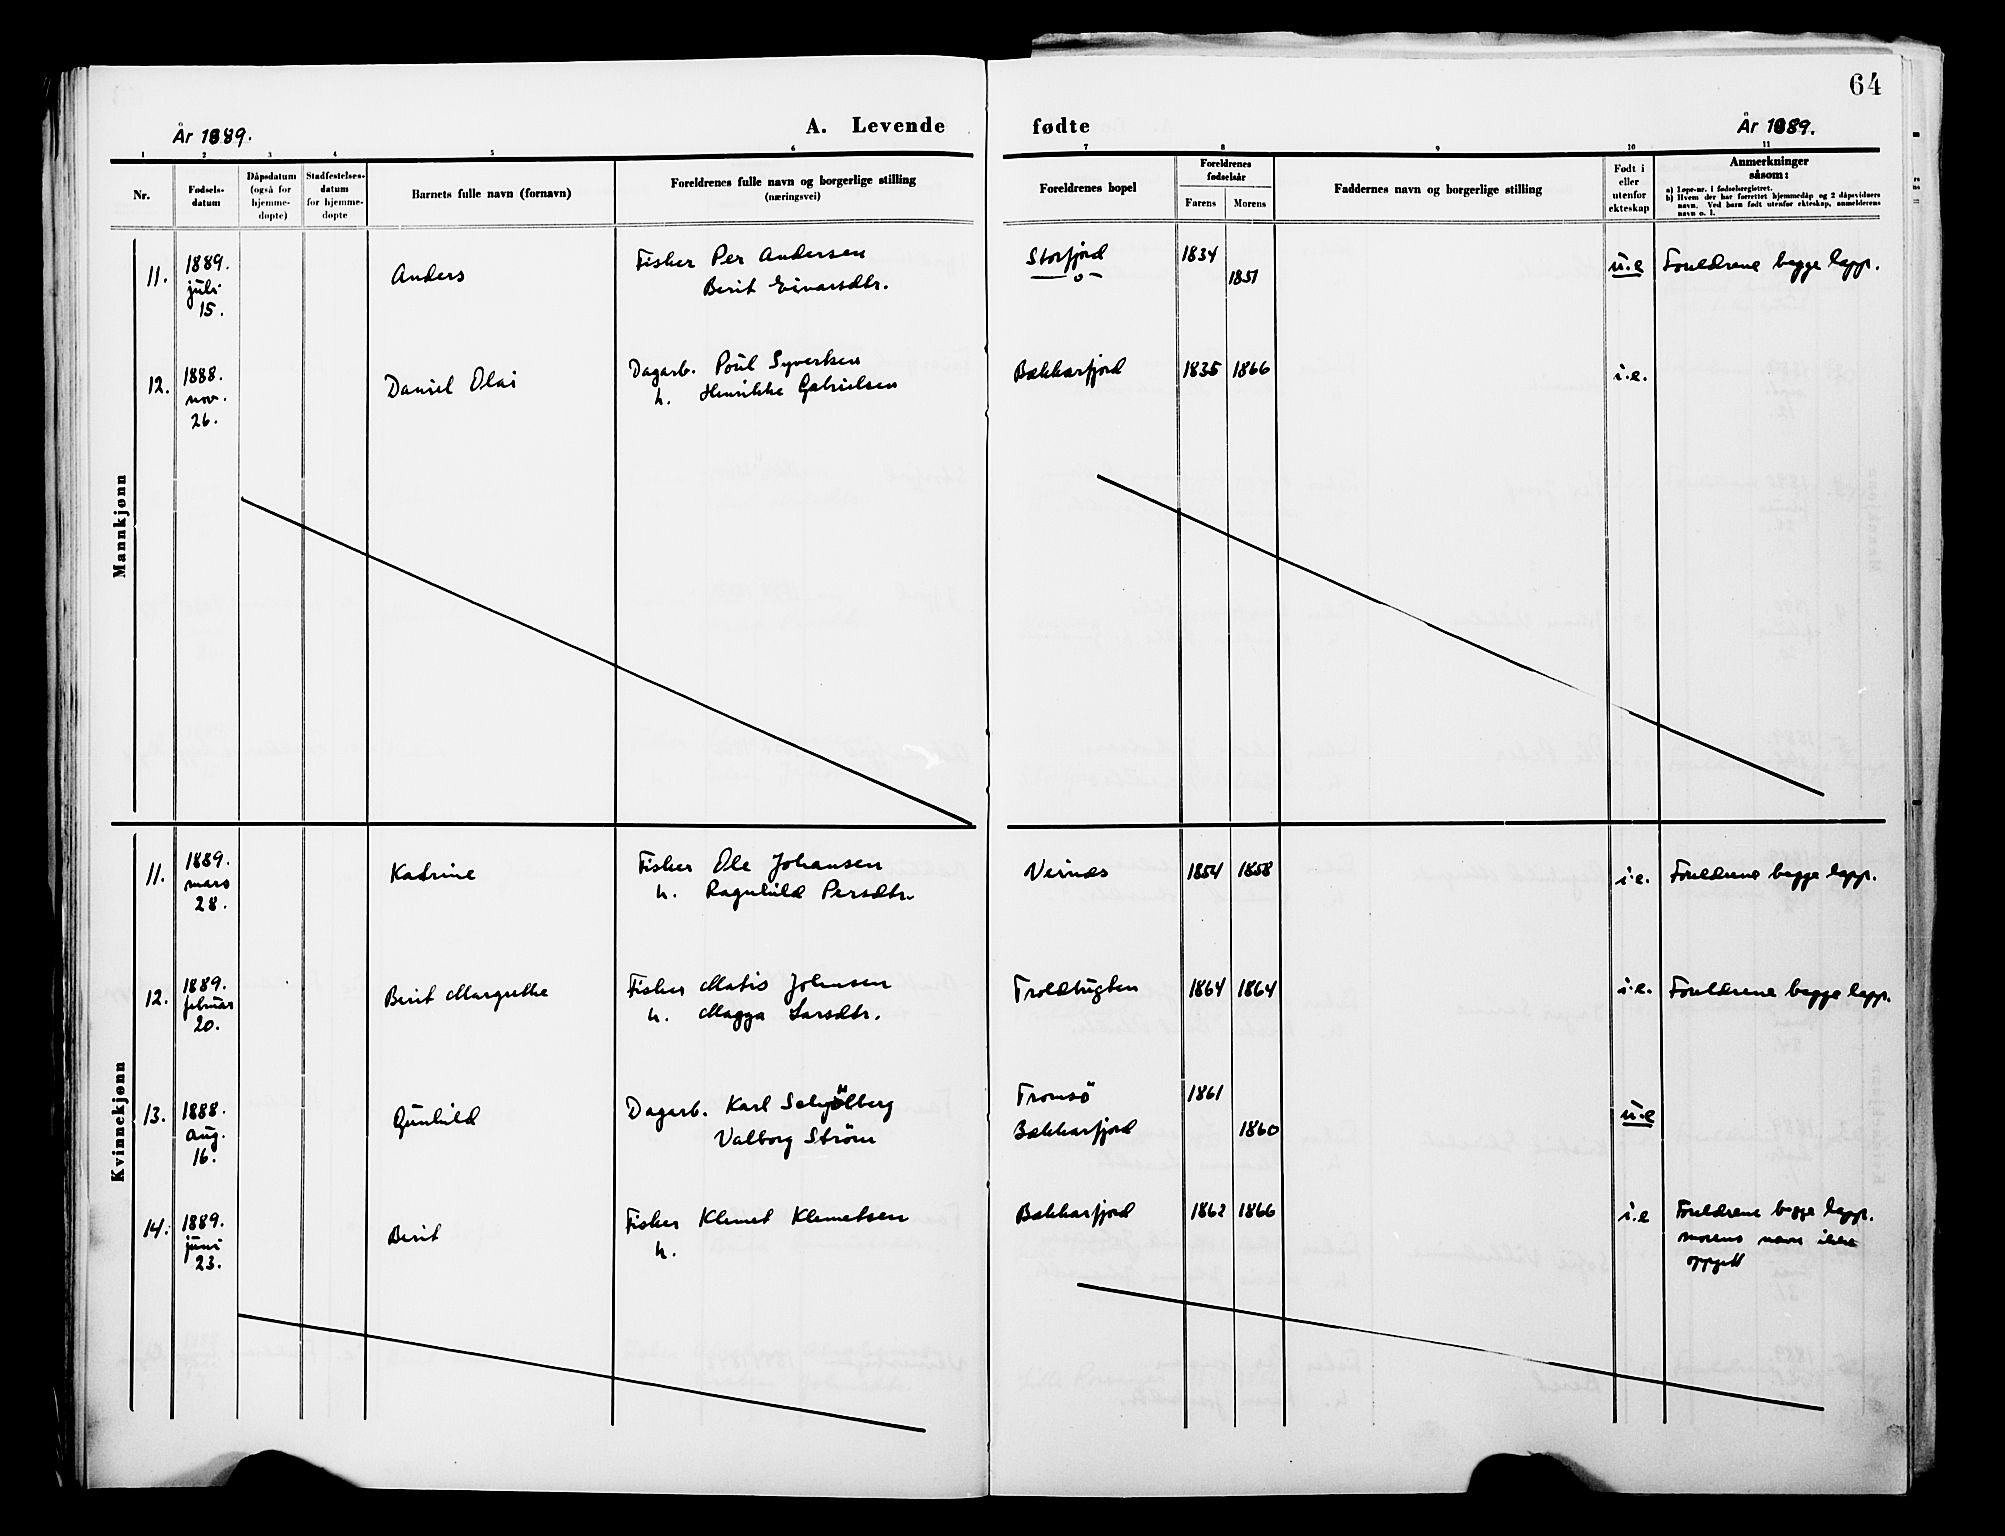 64
År 1889.
A. Levende fødte
År 1889.
1 2 3 4 5 6 7 8 9 10 11
Nr.
Fødsels-
datum
Dåpsdatum
(også for
hjemme-
døpte)
Stadfestelses-
datum
for hjemme-
døpte
Barnets fulle navn (fornavn)
Foreldrenes fulle navn og borgerlige stilling
(næringsvei)
Foreldrenes bopel
Foreldrenes
fødselsår
Farens Morens
Faddernes navn og borgerlige stilling
Født i
eller
utenfor
ekteskap
Anmerkninger
såsom:
a) Løpe-nr. i fødselsregistret.
b) Hvem der har forrettet hjemmedåp og 2 dåpsvidners
navn. Ved barn født utenfor ekteskap, anmelderens
navn o. l.
Mannkjønn
11. 1889. juli 15. Anders Fisker Per Andersen Storfjord 1834 u.e Foreldrene begge lapp.
Berit Eivarsdtr. —o— 1851
12. 1888. nov. 26. Daniel Olai Dagarb. Poul Syvertsen Bakkarfjord 1835 1866 i.e.
h. Henrikke Gabrielsen
Kvinnekjønn
11. 1889. mars 28. Katrine Fisker Ole Johansen Veinæs 1854 1858 i.e. Foreldrene begge lapp.
h. Ragnhild Persdtr.
12. 1889. februar 20. Berit Margrethe Fisker Matis Johnsen Troldbugten 1864 1864 i.e. Foreldrene begge lapp.
h. Magga Larsdtr.
13. 1888. Aug. 16. Gunhild Dagarb. Karl Schjölberg Tromsö 1861 u.e
Valborg Ström Bakkarfjord 1860
14. 1889. juni 23. Berit Fisker Klemet Klemetsen Bakkarfjord 1862 1866 i.e Foreldrene begge lapp.
h. morens navn ikke
oppgitt